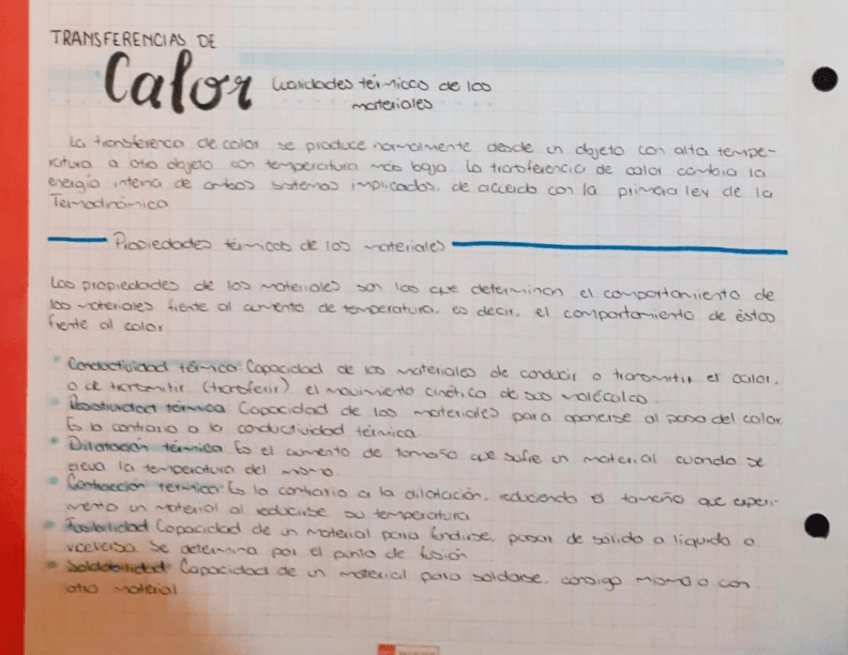 TRANSFERENCIAS DE
Calor Cualidades térmicas de los
materiales
La transferencia de calor se produce normalmente desde un objeto con alta tempe-
ratura a otro objeto con temperatura más baja. La transferencia de calor cambia la
energía interna de ambos sistemas implicados, de acuerdo con la primera ley de la
Termodinámica
Propiedades térmicas de los materiales
Las propiedades de los materiales son las que determinan el comportamiento de
los materiales frente al aumento de temperatura, es decir, el comportamiento de éstos
frente al calor
Conductividad térmica: Capacidad de los materiales de conducir o transmitir el calor,
o de transmitir (transferir) el movimiento cinético de sus moléculas.
Resistividad térmica Capacidad de los materiales para oponerse al paso del calor.
Es lo contrario a la conductividad térmica.
Dilatación térmica Es el aumento de tamaño que sufre un material cuando se
eleva la temperatura del mismo.
Contracción térmica: Es lo contrario a la dilatación, reduciendo el tamaño que experi-
mento un material al reducirse su temperatura
Fusibilidad Capacidad de un material para fundirse, pasar de sólido a líquido o
viceversa. Se determina por el punto de fusión
Soldabilidad Capacidad de un material para soldarse, consigo mismo o con
otro material